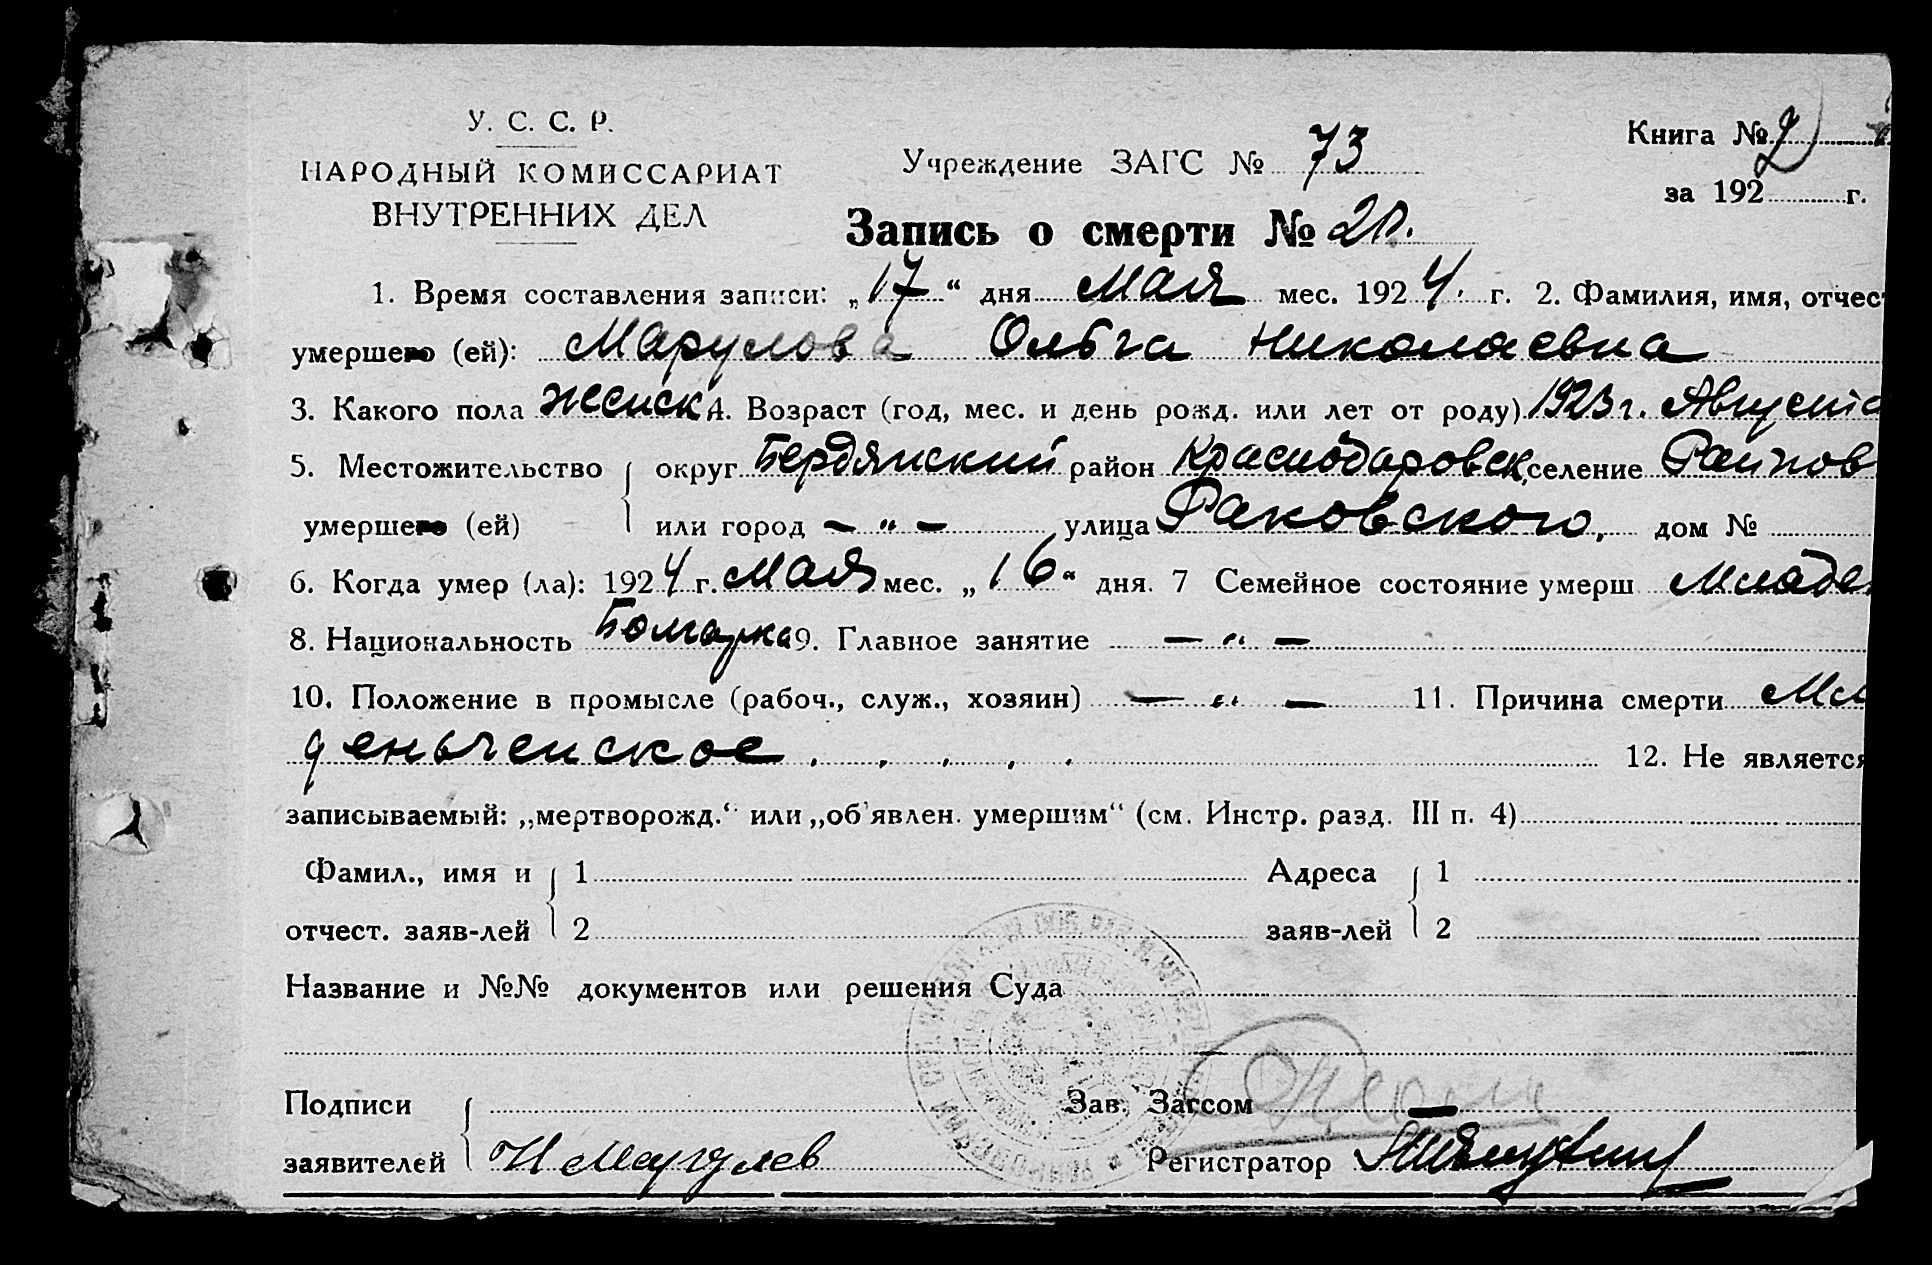 У. С. С. Р.
НАРОДНЫЙ КОМИССАРИАТ
ВНУТРЕННИХ ДЕЛ
Учреждение ЗАГС № 73
Книга № 2
за 192 г.
Запись о смерти № 20.
1. Время составления записи: „17“ дня Мая мес. 1924. г. 2. Фамилия, имя, отчест
умершего (ей): Марулова Ольга Николаевна
3. Какого пола женск 4. Возраст (год, мес. и день рожд. или лет от роду) 1923 г. Августа
5. Местожительство округ Бердянский район Краснодаровск. селение Раинов
умершего (ей) или город — „ — улица Раковского, дом №
6. Когда умер (ла): 1924 г. Мая мес. „16“ дня. 7 Семейное состояние умерш Младе
8. Национальность Болгарка 9. Главное занятие — „ —
10. Положение в промысле (рабоч., служ., хозяин) — „ — 11. Причина смерти Мл
деньческое . . . . . 12. Не является
записываемый: „мертворожд.“ или „об'явлен. умершим“ (см. Инстр. разд. III п. 4)
Фамил., имя и 1 Адреса 1
отчест. заяв-лей 2 заяв-лей 2
Название и №№ документов или решения Суда
Подписи Зав. Загсом
заявителей Н Марулев Регистратор